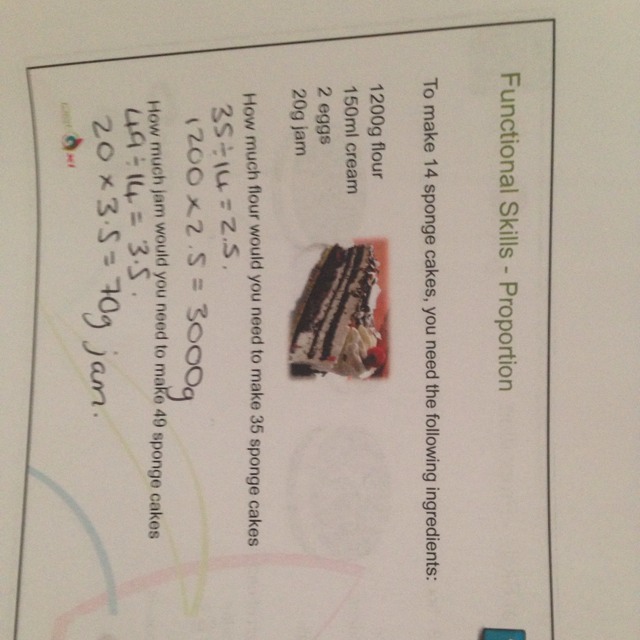 Functional Skills - Proportion
To make 14 sponge cakes, you need the following ingredients:
1200g flour
150ml cream
2 eggs
20g jam
How much flour would you need to make 35 sponge cakes
35÷14=2.5.
1200 x 2.5 = 3000g
How much jam would you need to make 49 sponge cakes
49÷14= 3.5.
20 x 3.5 = 70g jam.